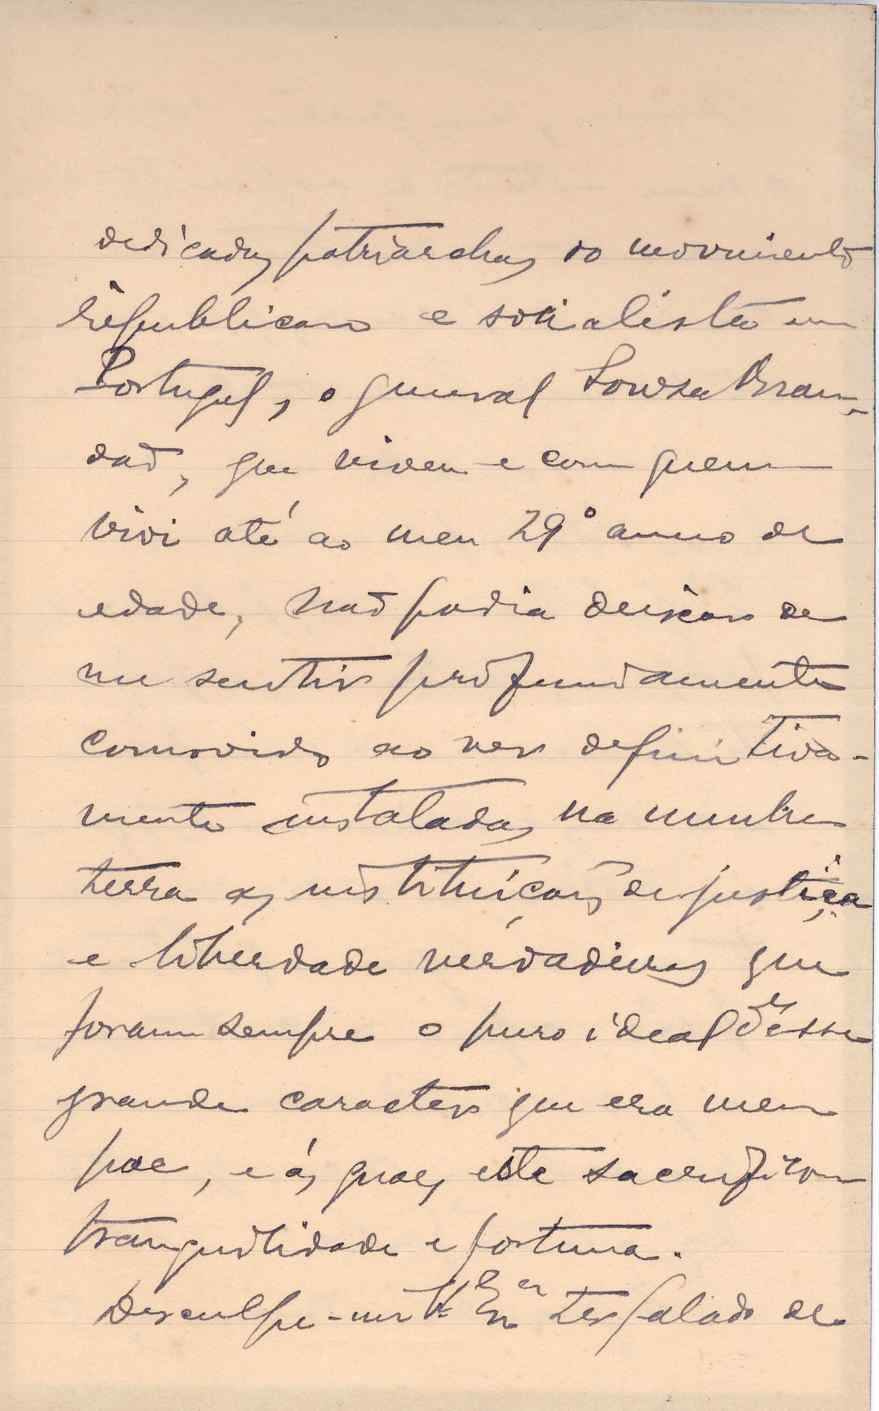 dedicados patriarchas do movimento
républicano e socialista em
Portugal, o general Souza Bran-
dão, que viveu e com quem
vivi até ao meu 29º anno de
edade, não podia deixar de
me sentir profundamente
comovido ao ver definitiva-
mente instaladas na minha
terra as instituições de justiça
e liberdade verdadeiras que
foram sempre o puro ideal d'esse
grande caracter que era meu
pae, e ás quaes este sacrificou
tranquilidade e fortuna.
Desculpe-me V. Exª ter falado de